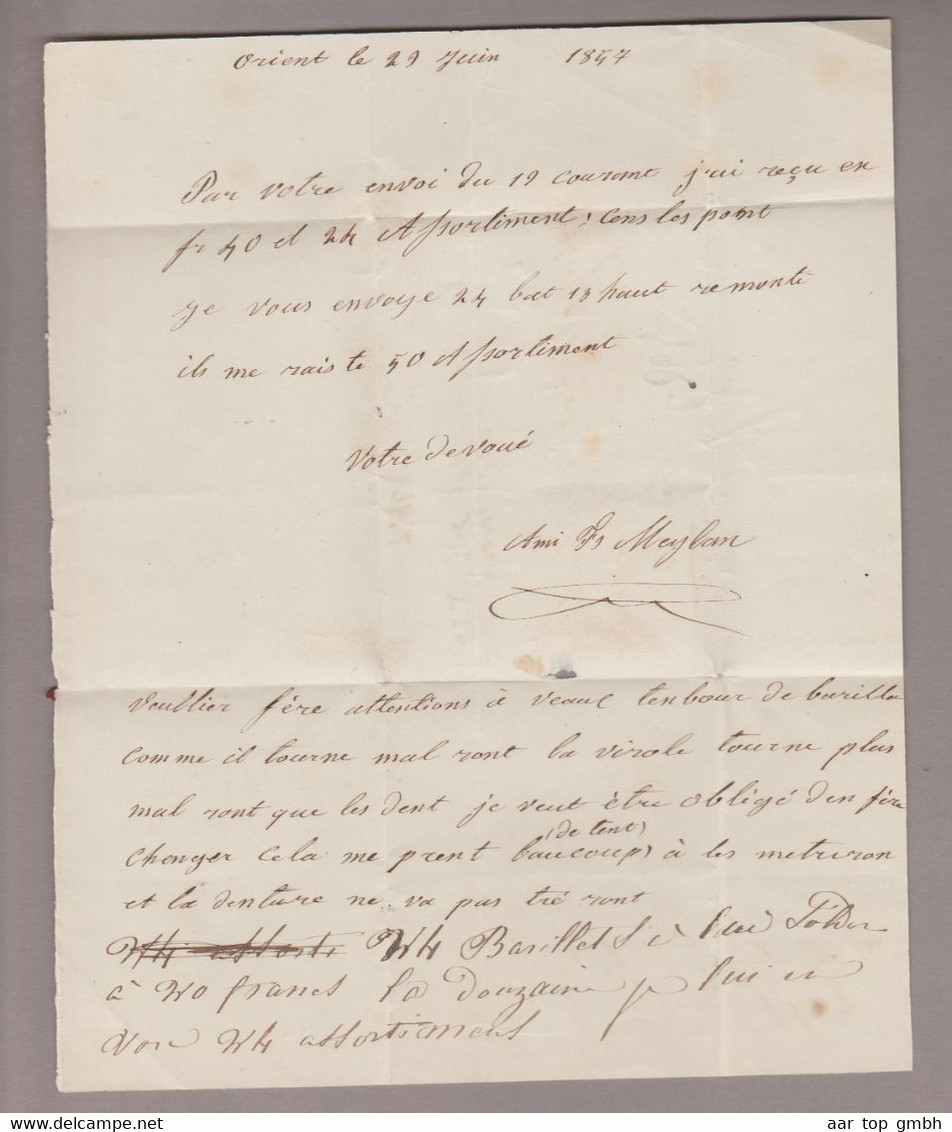 Orient le 29 Juin 1857
Par votre envoi du 19 courant j'ai reçu en
fr 40 et 24 Assortiment, cens les point
Je vous envoye 24 bat 13 haut remonte
ils me raiste 50 Assortiment
Votre devoué
Ami Fs Meylan
veullier fére attentions à veaux tenbour de barilla
comme il tourne mal ront la virole tourne plus
mal ront que les dent je veut être obligé den fére
(de tent)
chenger cela me prent baucoup à les metre ron
et la denture ne va pas tré ront
24 Barillet
à 20 francs la Douzaine je lui en
24 assortiments
aar top gmbh